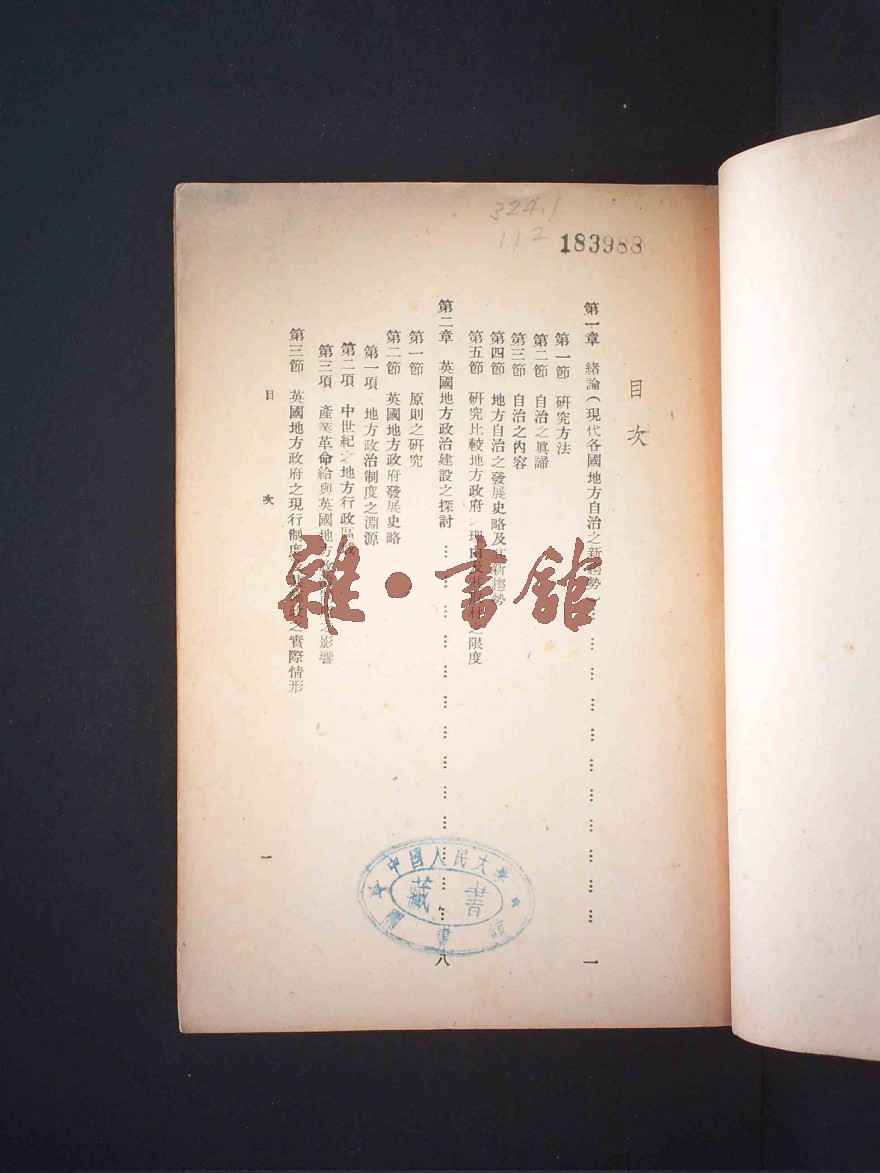 324.1
112
183983
目次
第一章　緒論(現代各國地方自治之新趨勢)… … … … … … … … … … … 一
第一節　研究方法
第二節　自治之眞諦
第三節　自治之內容
第四節　地方自治之發展史略及其新趨勢
第五節　研究比較地方政府之理由及 之限度
第二章　英國地方政治建設之探討 … … … … … … … … … … … … 八
第一節　原則之研究
第二節　英國地方政府發展史略
第一項　地方政治制度之淵源
第二項　中世紀之地方行政區域
第三項　產業革命給與英國地方 之影響
第三節　英國地方政府之現行制度 政之實際情形
目　次
一
雜·書館
中國人民大學
圖書館
藏書